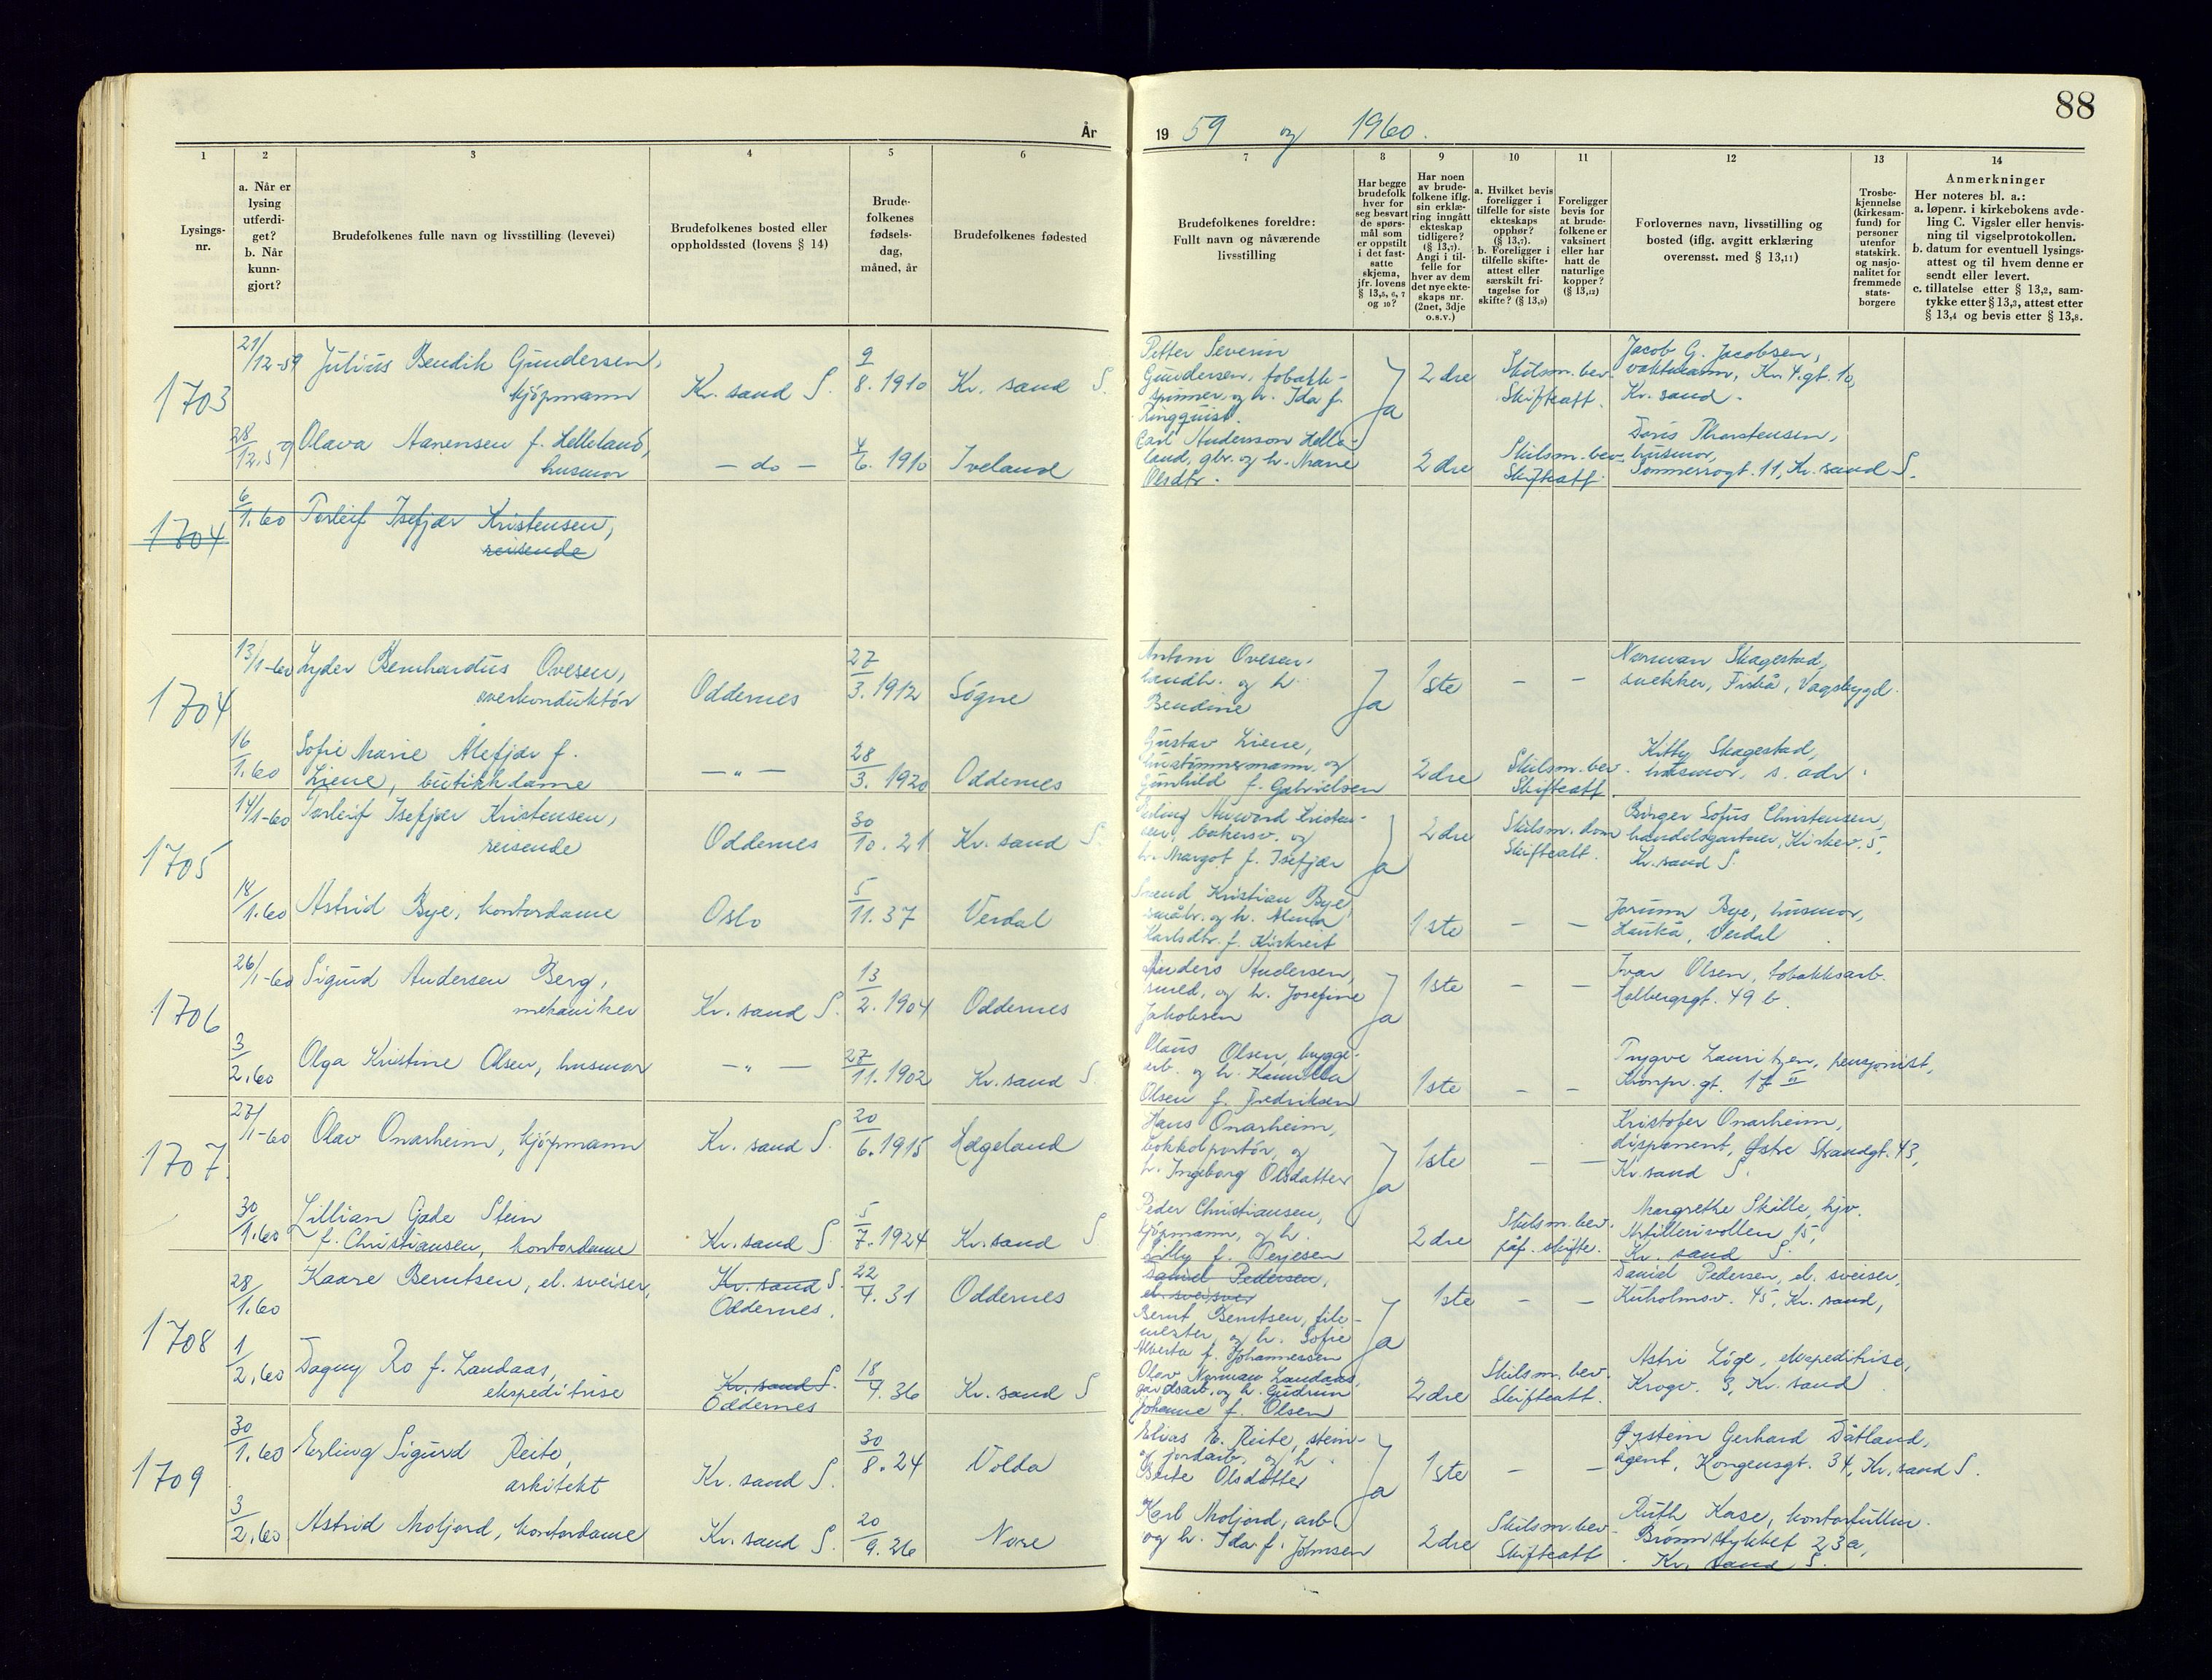 88
År
19 59 og 1960.
1
2
3
4
5
6
7
8
9
10
11
12
13
14
Lysings-
nr.
a. Når er
lysing
utferdi-
get?
b. Når
kunn-
gjort?
Brudefolkenes fulle navn og livsstilling (levevei)
Brudefolkenes bosted eller
oppholdssted (lovens § 14)
Brude-
folkenes
fødsels-
dag,
måned, år
Brudefolkenes fødested
Brudefolkenes foreldre:
Fullt navn og nåværende
livsstilling
Har begge
brudefolk
hver for
seg besvart
de spørs-
mål som
er oppstilt
i det fast-
satte
skjema,
jfr. lovens
§ 13,5, 6, 7
og 10?
Har noen
av brude-
folkene iflg.
sin erklæ-
ring inngått
ekteskap
tidligere?
(§ 13,7).
Angi i til-
felle for
hver av dem
det nye ekte-
skaps nr.
(2net, 3dje
o.s.v.)
a. Hvilket bevis
foreligger i
tilfelle for siste
ekteskaps
opphør?
(§ 13,7).
b. Foreligger i
tilfelle skifte-
attest eller
særskilt fri-
tagelse for
skifte? (§ 13,9)
Foreligger
bevis for
at brude-
folkene er
vaksinert
eller har
hatt de
naturlige
kopper?
(§ 13,12)
Forlovernes navn, livsstilling og
bosted (iflg. avgitt erklæring
overensst. med § 13,11)
Trosbe-
kjennelse
(kirkesam-
fund) for
personer
utenfor
statskirk.
og nasjo-
nalitet for
fremmede
stats-
borgere
Anmerkninger
Her noteres bl. a.:
a. løpenr. i kirkebokens avde-
ling C. Vigsler eller henvis-
ning til vigselprotokollen.
b. datum for eventuell lysings-
attest og til hvem denne er
sendt eller levert.
c. tillatelse etter § 13,2, sam-
tykke etter § 13,3, attest etter
§ 13,4 og bevis etter § 13,8.
1703
21/12-59
Julius Bendik Gundersen,
kjöpmann
Kr. sand S.
9/8. 1910
Kr. sand S.
Petter Severin
Gundersen, tobakk-
spinner, og h. Ida f.
Ringquist.
Ja
2dre
Skilsm. bev.
Skifteatt.
Jacob G. Jacobsen,
vaktmann, Kr. 4. gt. 10,
Kr. sand.
28/12.59
Olava Hanensen f. Helleland,
husmor
- do -
4/6. 1910
Iveland
Carl Andersson Helle-
land, gbr. og h. Marie
Olsdtr.
2dre
Skilsm. bev.
Skifteatt.
Doris Thorstensen,
husmor,
Sommerrogt. 11, Kr. sand S.
1704
6/1.60
Torleif Isefjær Kristensen,
reisende
1704
13/1-60
Lyder Bernhardus Ovesen,
overkonduktör
Oddernes
27/3. 1912
Søgne
Antoni Ovesen,
landh. og h.
Bendine
Ja
1ste
-
-
Norman Skagestad,
snekker, Fiskå, Vågsbygd.
16/1.60
Sofie Marie Ålefjær f.
Liene, butikkdame
- " -
28/3. 1920
Oddernes
Gustav Liene,
hustömmermann, og
Gunhild f. Gabrielsen
2dre
Skilsm. bev.
Skifteatt.
Kitty Skagestad,
husmor, s. adr.
1705
14/1-60
Torleif Isefjær Kristensen,
reisende
Oddernes
30/10. 21
Kr. sand S.
Erling Anvard Kristen-
sen, bakersv. og
h. Margot f. Isefjær
Ja
2dre
Skilsm. dom
Skifteatt.
Birger Sofus Christensen,
handelsgartner, Kirkev. 5,
Kr. sand S.
18/1.60
Astrid Bye, kontordame
Oslo
5/11. 37
Verdal
Svend Kristian Bye,
småbr. og h. Alma
Karlsdtr. f. Kirkreit
1ste
-
-
Jorunn Bye, husmor,
Haukå, Verdal
1706
26/1-60
Sigurd Andersen Berg,
mekaniker
Kr. sand S.
13/2. 1904
Oddernes
Anders Andersen,
smed, og h. Josefine
Jakobsen
Ja
1ste
-
-
Ivar Olsen, tobakksarb.
Holbergsgt. 49 b.
3/2.60
Olga Kristine Olsen, husmor
- " -
27/11. 1902
Kr. sand S.
Olaus Olsen, bygge-
arb. og h. Kamilla
Olsen f. Fredriksen
1ste
-
-
Trygve Lauritzen, pensjonist,
Kronpr. gt. 17 II
1707
27/1-60
Olav Onarheim, kjöpmann
Kr. sand S.
20/6. 1915
Hægeland
Hans Onarheim,
bokkolportör, og
h. Ingeborg Olsdatter
Ja
1ste
-
-
Kristofer Onarheim,
disponent, Østre Strandgt. 43,
Kr. sand S.
30/1.60
Lillian Gade Stein
f. Christiansen, kontordame
Kr. sand S
5/7. 1924
Kr. sand S
Peder Christiansen,
kjöpmann, og h.
Lilly f. Terjesen
2dre
Skilsm. bev.
påf. skifte.
Margrethe Skille, hjv.
Artillerivollen 15,
Kr. sand S.
1708
28/1.60
Kaare Berntsen, el. sveiser,
Kr. sand S.
Oddernes.
22/4. 31
Oddernes
Daniel Pedersen,
el. sveiser
Bernt Berntsen, file-
mester, og h. Sofie
Alberta f. Johannessen
Ja
1ste
-
-
Daniel Pedersen, el. sveiser,
Kuholmsv. 45, Kr. sand,
1/2.60
Dagny Ro f. Landaas,
ekspeditrise
Kr. sand S.
Oddernes
18/4. 36
Kr. sand S
Olav Norman Landaas,
gårdsarb. og h. Gudrun
Johanne f. Olsen
2dre
Skilsm. bev.
Skifteatt.
Astri Löge, ekspeditrise,
Krogv. 3, Kr. sand
1709
30/1.60
Erling Sigurd Reite,
arkitekt
Kr. sand S.
30/8. 24
Volda
Elias E. Reite, stein-
og jordarb, og h.
Berte Olsdatter
Ja
1ste
-
-
Øystein Gerhard Dåtland,
agent, Kongensgt. 34, Kr. sand S.
3/2.60
Astrid Moljord, kontordame
Kr. sand S.
20/9. 26
Nore
Karl Moljord, arb.
og h. Ida f. Johnsen
2dre
Skilsm. bev.
Skifteatt
Ruth Kase, kontorfullm.
Brønnstykket 23a,
Kr. sand S.